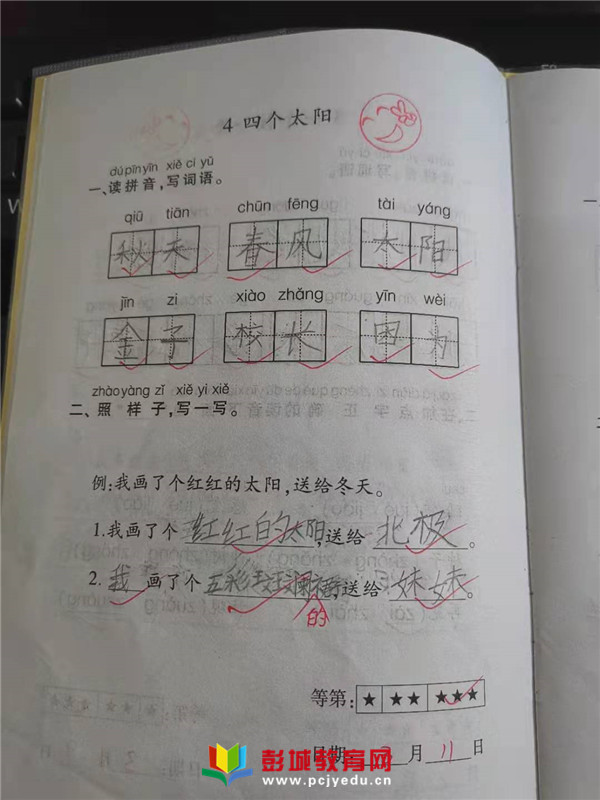 4 四个太阳
dú pīn yīn xiě cí yǔ
一、读拼音，写词语。
qiū tiān chūn fēng tài yáng
秋天 春风 太阳
jīn zi xiào zhǎng yīn wèi
金子 校长 因为
zhào yàng zǐ xiě yi xiě
二、照样子，写一写。
例：我画了个红红的太阳，送给冬天。
1.我画了个红红的太阳，送给北极。
2.我画了个五彩斑斓 送给妹妹。
的
等第：★ ★★ ★★★
日期 3 月 11 日
彭城教育网
www.pcjyedu.cn